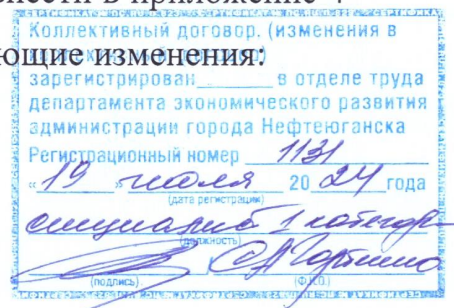 нести в приложение
Коллективный договор. (изменения в
ющие изменения:
зарегистрирован в отделе труда
департамента экономического развития
администрации города Нефтеюганска
Регистрационный номер 1131
«19» июля 2024 года
(дата регистрации)
специалист 1 категор
(должность)
(подпись) (Ф.И.О.)